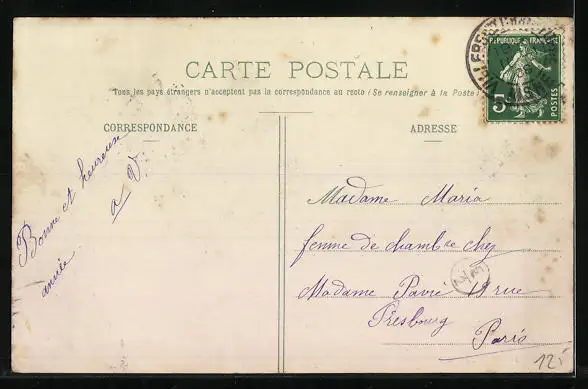 CARTE POSTALE
Tous les pays étrangers n'acceptent pas la correspondance au recto (Se renseigner à la Poste)
CORRESPONDANCE
ADRESSE
REPUBLIQUE FRANÇAISE
5
POSTES
Bonne et heureuse
année
a V.
Madame Maria
femme de chambre chez
Madame Pavie rue
Presbourg
Paris